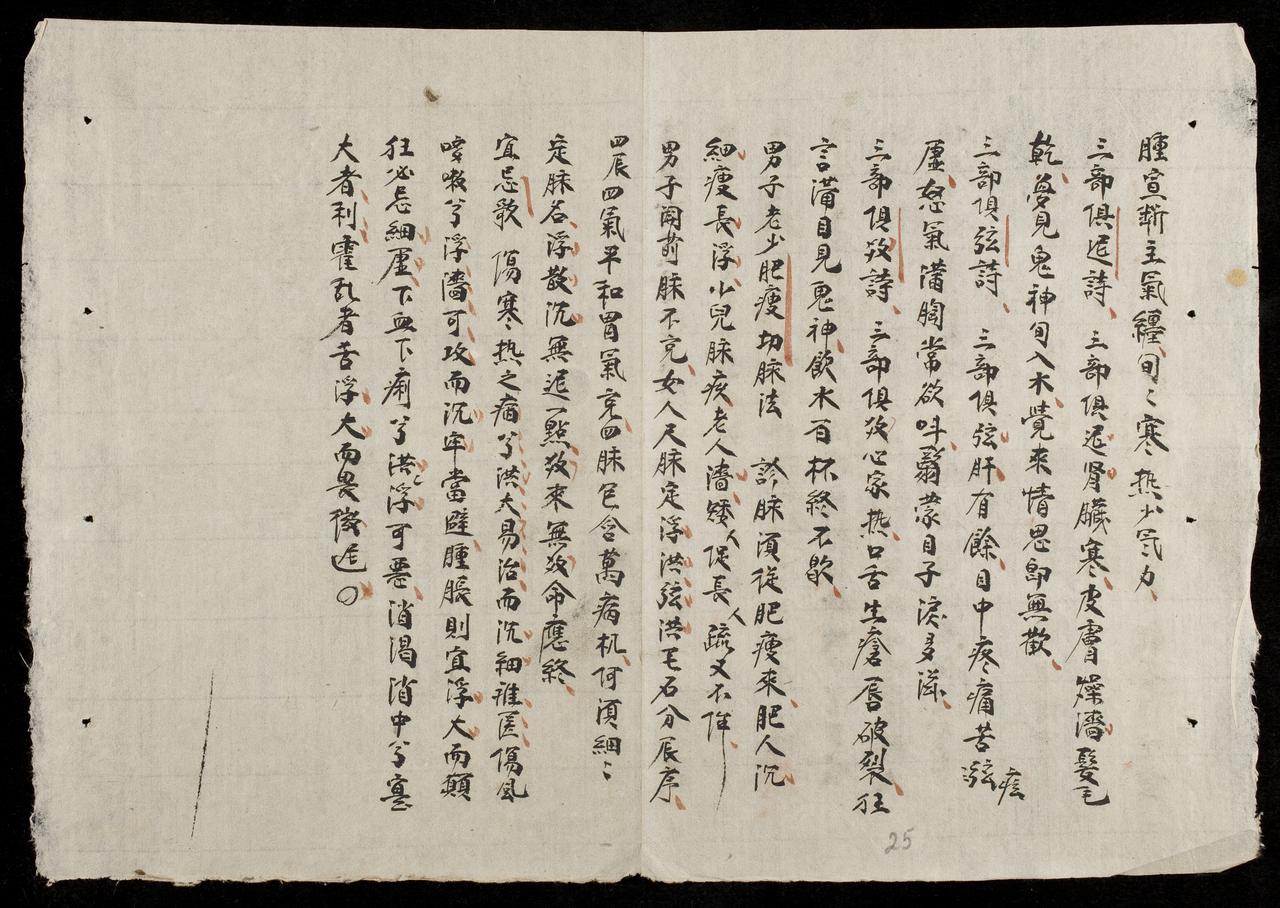 腫宣斬主氣纏旬〻寒热少氣力
三部俱迟詩、三部俱迟肾臟寒、皮膚燥濇髮毛
乾、夢見鬼神旬入水、覺来情思即無歡、
三部俱弦詩、三部俱弦肝有餘、目中疼痛苦弦痃
虛、怒氣滿胸常欲叫、翳蒙目子淚多滋、
三部俱数詩、三部俱数心家热、口舌生瘡唇破裂、狂
言滿目見鬼神、飲水百杯終不歇、
男子老少肥瘦切脉法 診脉須従肥瘦来、肥人沉
細瘦長浮、小兒脉疾老人濇、矮人促長人疏又不
男子関前脉不克、女人尺脉定浮洪、弦洪毛石分辰序、
四辰四氣平和胃氣克、四脉包含萬病机、何須細〻
定脉名、浮散沉無迟一點、数来無数命應終、
宜忌歌 傷寒热之病兮洪大易治而沉細难医傷風
咳嗽兮浮濇可攻而沉牢當避腫脹則宜浮大而顛
狂必忌細虛下血下痢兮洪浮可惡消渴消中兮寔
大者利霍乱者苦浮大而畏微迟〇
25